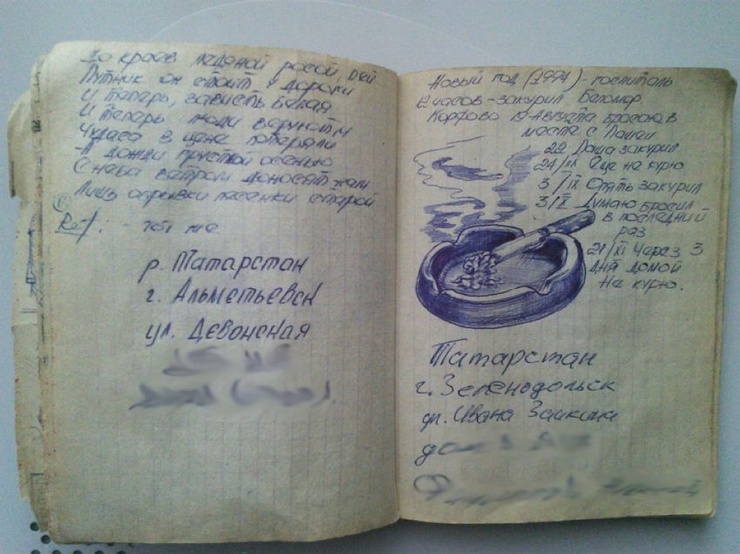 До краёв медяной росой, пей
Путник он стоит у дороги
И теперь, зависть белая
И теперь люди воруют
Чудеса в цене потеряли
А дожди грустной осенью
С неба ветром доносят нам
Лишь обрывки песенки старой
Реп. - тот же
р. Татарстан
г. Альметьевск
ул. Девонская
Новый год (1994) - госпиталь
12 часов - закурил Беломор.
Корфово 15 Августа бросаю в
месте с Пашей
22 Паша закурил
21/IX Еще не курю
3/IX Опять закурил
3/X Думаю бросил
в последний
раз
21/XI Через 3
дня домой
Не курю.
Татарстан
г. Зеленодольск
ул. Ивана Заикина